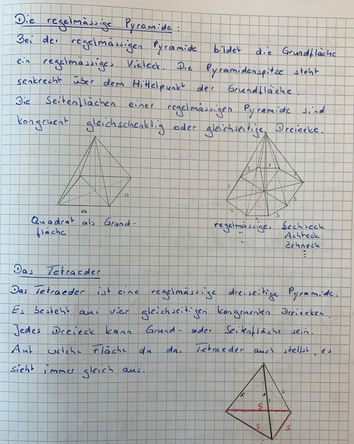 Die regelmässige Pyramide:
Bei der regelmässigen Pyramide bildet die Grundfläche
ein regelmässiges Vieleck. Die Pyramidenspitze steht
senkrecht über dem Mittelpunkt der Grundfläche.
Die Seitenflächen einer regelmässigen Pyramide sind
kongruent gleichschenklig oder gleichseitige Dreiecke.
a
a
Quadrat als Grund-
fläche
regelmässiges Sechseck
" Achteck
" Zehneck
Das Tetraeder
Das Tetraeder ist eine regelmässige dreiseitige Pyramide.
Es besteht aus vier gleichseitigen kongruenten Dreiecken.
Jedes Dreieck kann Grund- oder Seitenfläche sein.
Auf welche Fläche du das Tetraeder auch stellst, es
sieht immer gleich aus.
s
s
s
s
s